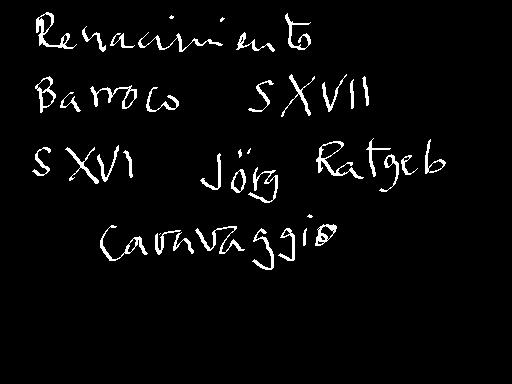 Renacimiento
Barroco SXVII
SXVI Jörg Ratgeb
Caravaggio